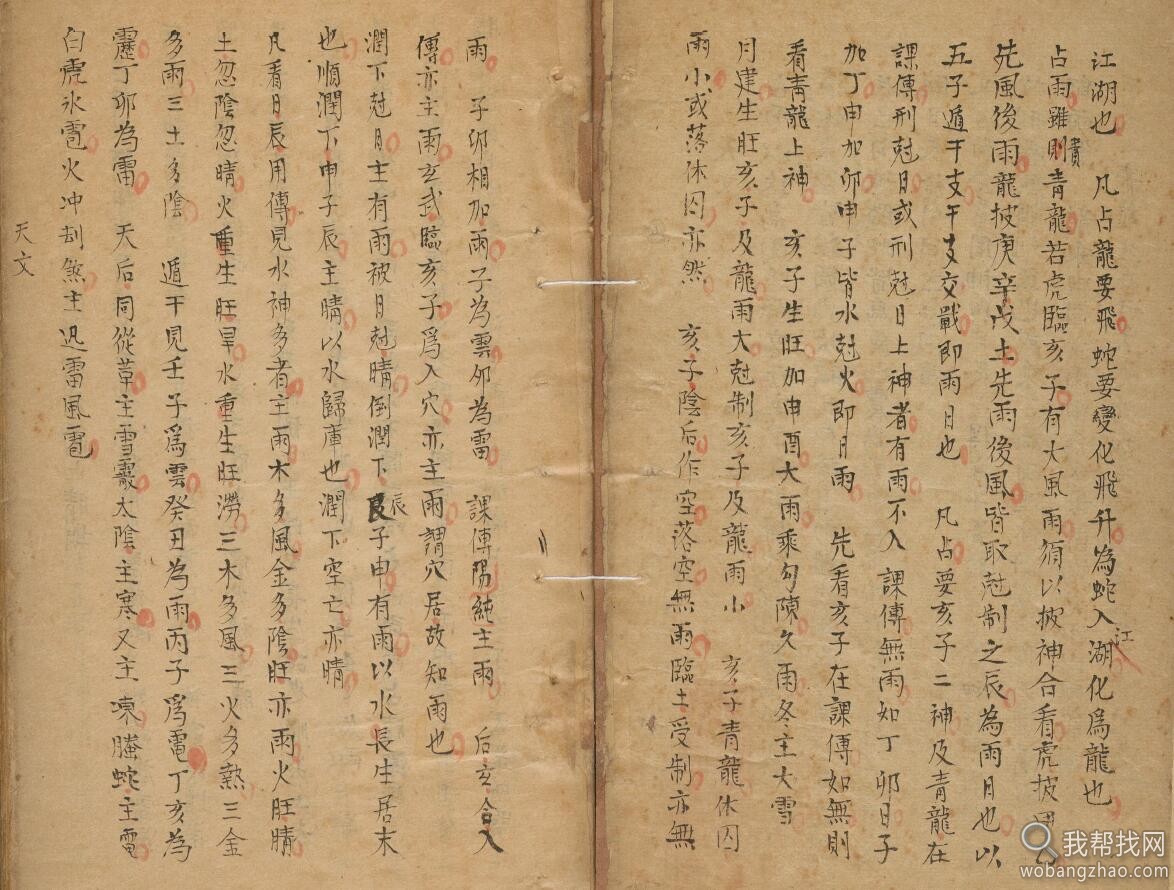 江湖也 凡占龍要飛蛇要變化飛升為蛇入江湖化為龍也
占雨雖則責青龍若虎臨亥子有大風雨須以披神合看虎披
先風後雨龍披庚辛戊土先雨後風皆取尅制之辰為雨日也以
五子遁干支干支交戰即雨日也 凡占要亥子二神及青龍在
課傳刑尅日或刑尅日上神者有雨不入課傳無雨如丁卯日子
加丁申加卯申子皆水尅火即日雨 先看亥子在課傳如無則
看青龍上神 亥子生旺加申酉大雨乘勾陳久雨冬主大雪
月建生旺亥子及龍雨大尅制亥子及龍雨小 亥子青龍休囚
雨小或落休囚亦然 亥子陰后作空落空無雨臨土受制亦無
雨 子卯相加雨子為雲卯為雷 課傳陽純主雨 后玄合入
傳亦主雨玄武臨亥子為入穴亦主雨謂穴居故知雨也
潤下尅日主有雨被日尅晴倒潤下辰子申有雨以水長生居末
也順潤下申子辰主晴以水歸庫也潤下空亡亦晴
凡看日辰用傳見水神多者主雨木多風金多陰旺亦雨火旺晴
土忽陰忽晴火重生旺旱水重生旺澇三木多風三火多熱三金
多雨三土多陰 遁干見壬子為雲癸丑為雨丙子為電丁亥為
靂丁卯為雷 天后同從革主雪霰太陰主寒又主凍螣蛇主電
白虎氷雹火冲刦煞主迅雷風雹
天文
我帮找网
wobangzhao.com